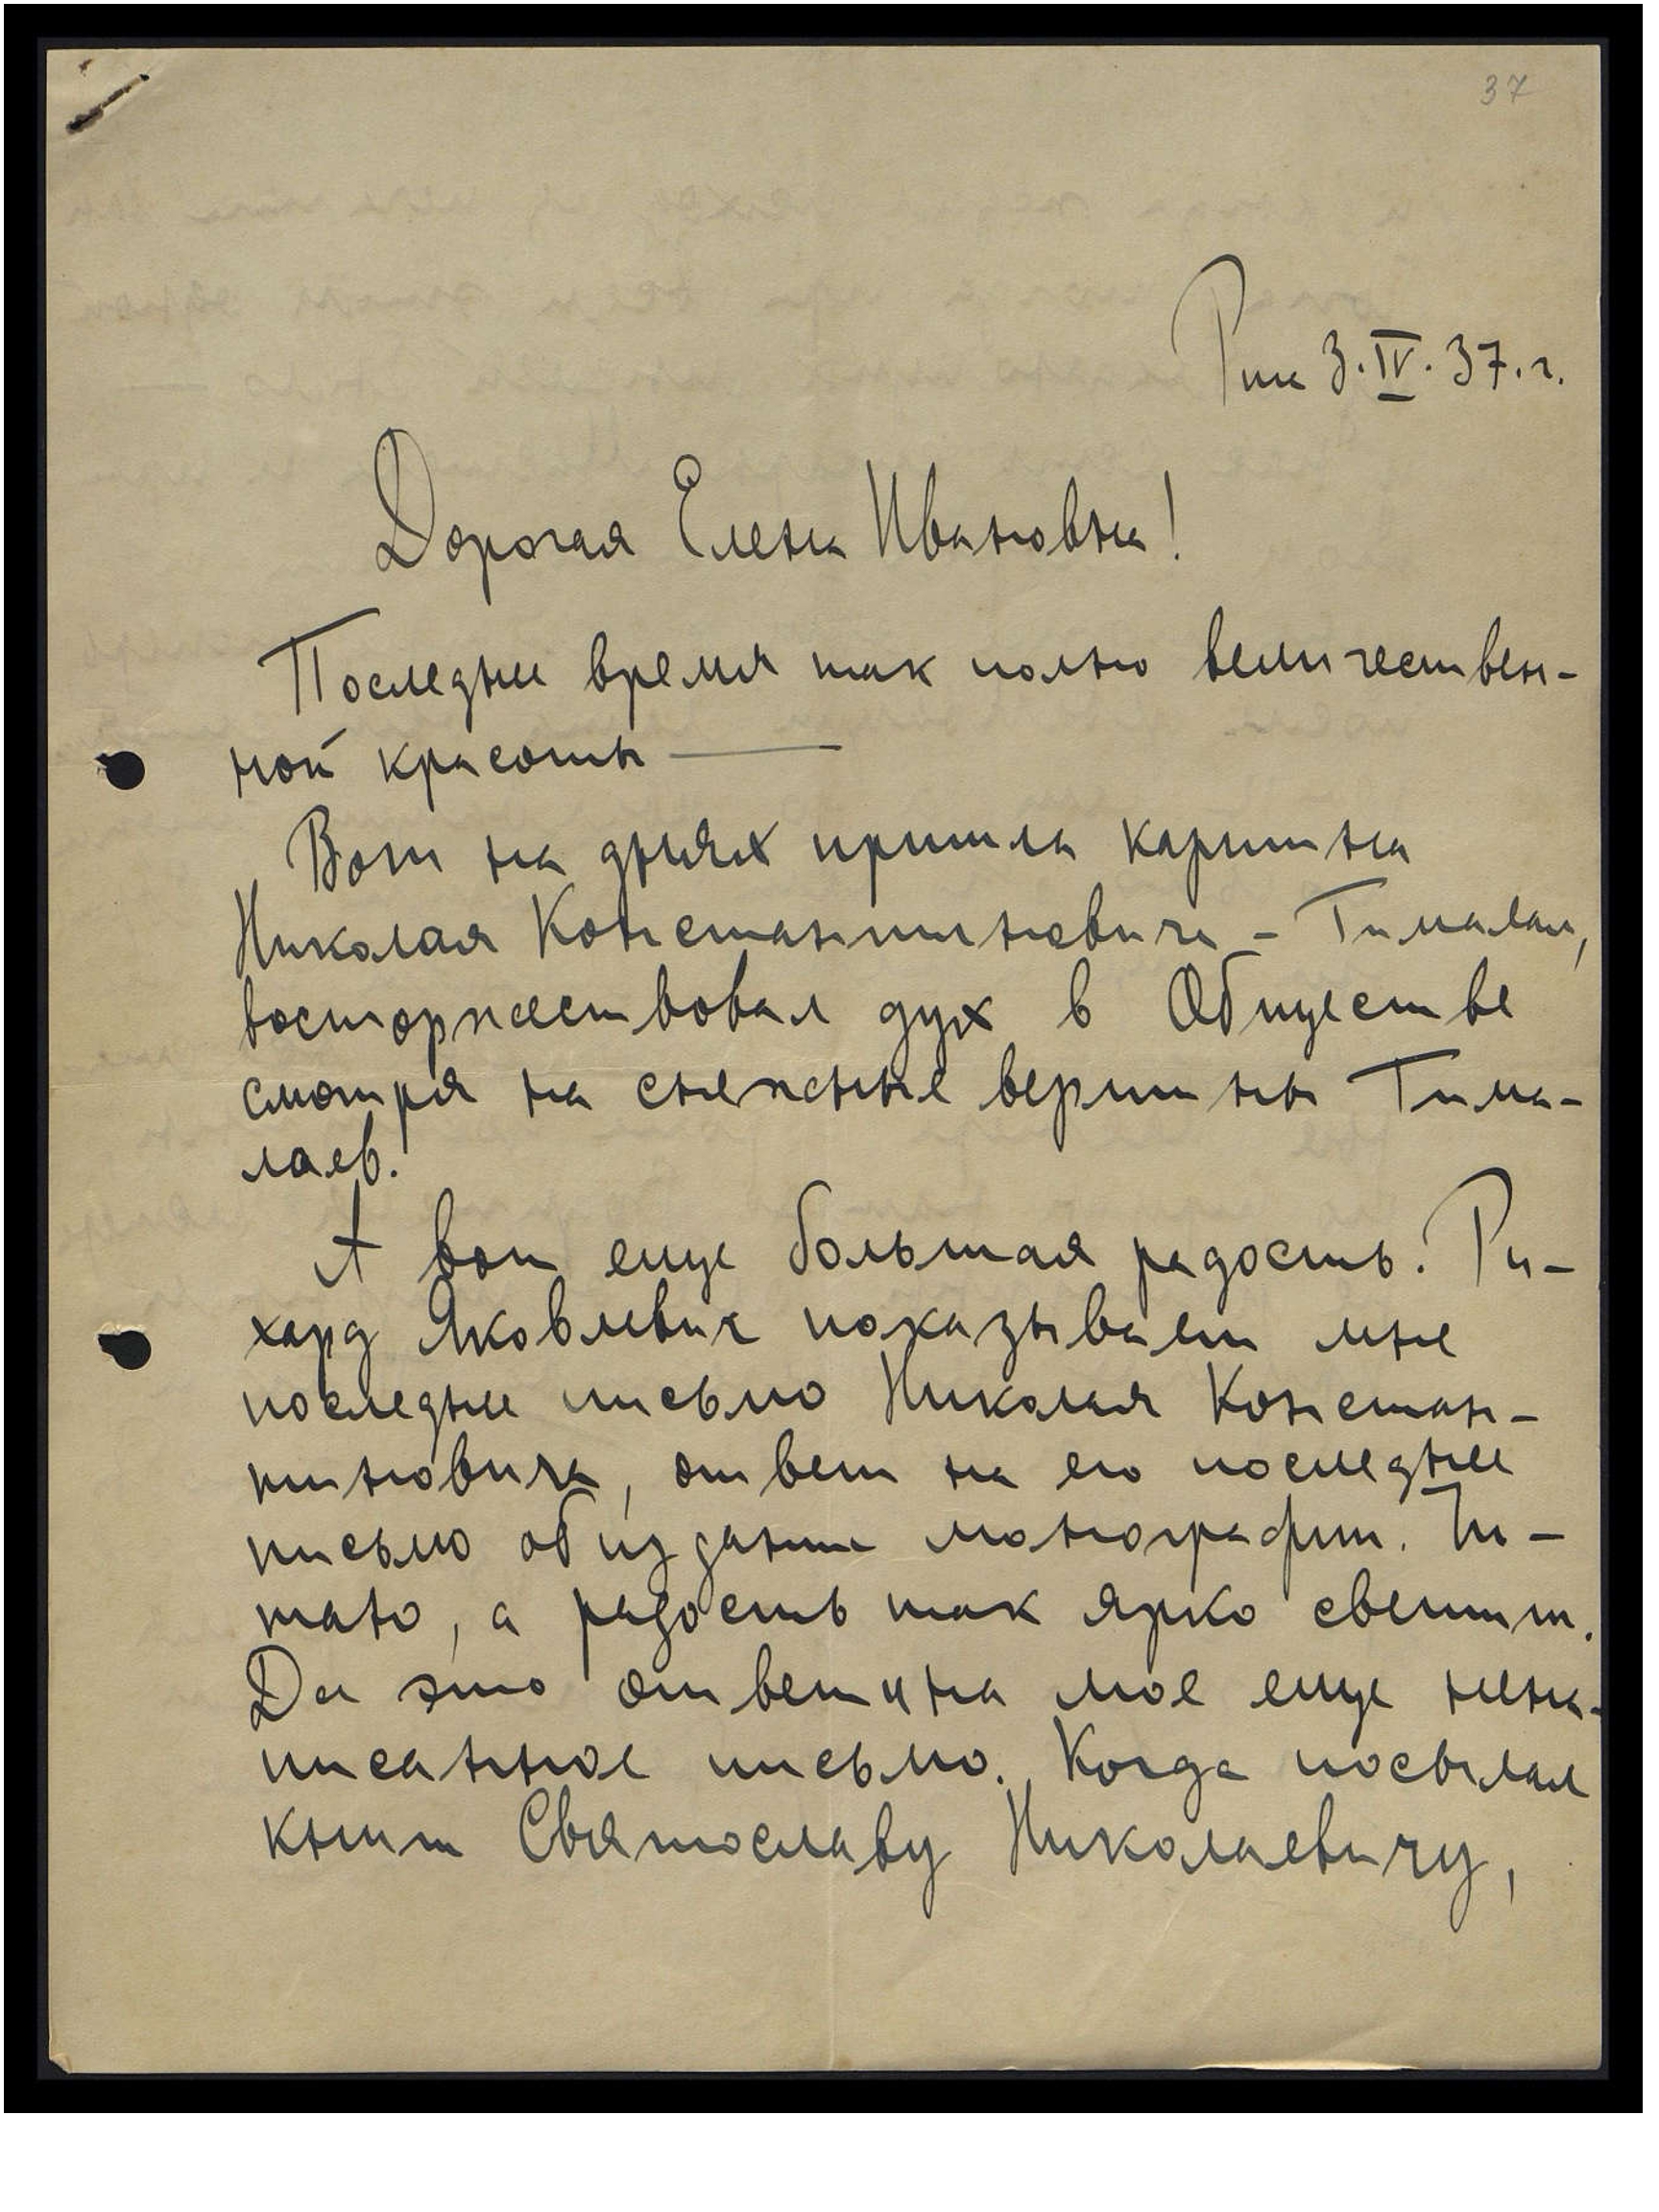 37
Рига 3.IV.37.г.
Дорогая Елена Ивановна!
Последнее время так полно величествен-
ной красоты ——
Вот на днях пришла картина
Николая Константиновича - Гималаи,
восторжествовал дух в Обществе
смотря на снежные вершины Гима-
лаев.
А вот еще большая радость. Ри-
хард Яковлевич показывает мне
последнее письмо Николая Констан-
тиновича, ответ на его последнее
письмо об издании монографии. Чи-
таю, а радость так ярко светит.
Да это ответ и на мое еще нена-
писанное письмо. Когда посылал
книги Святославу Николаевичу,